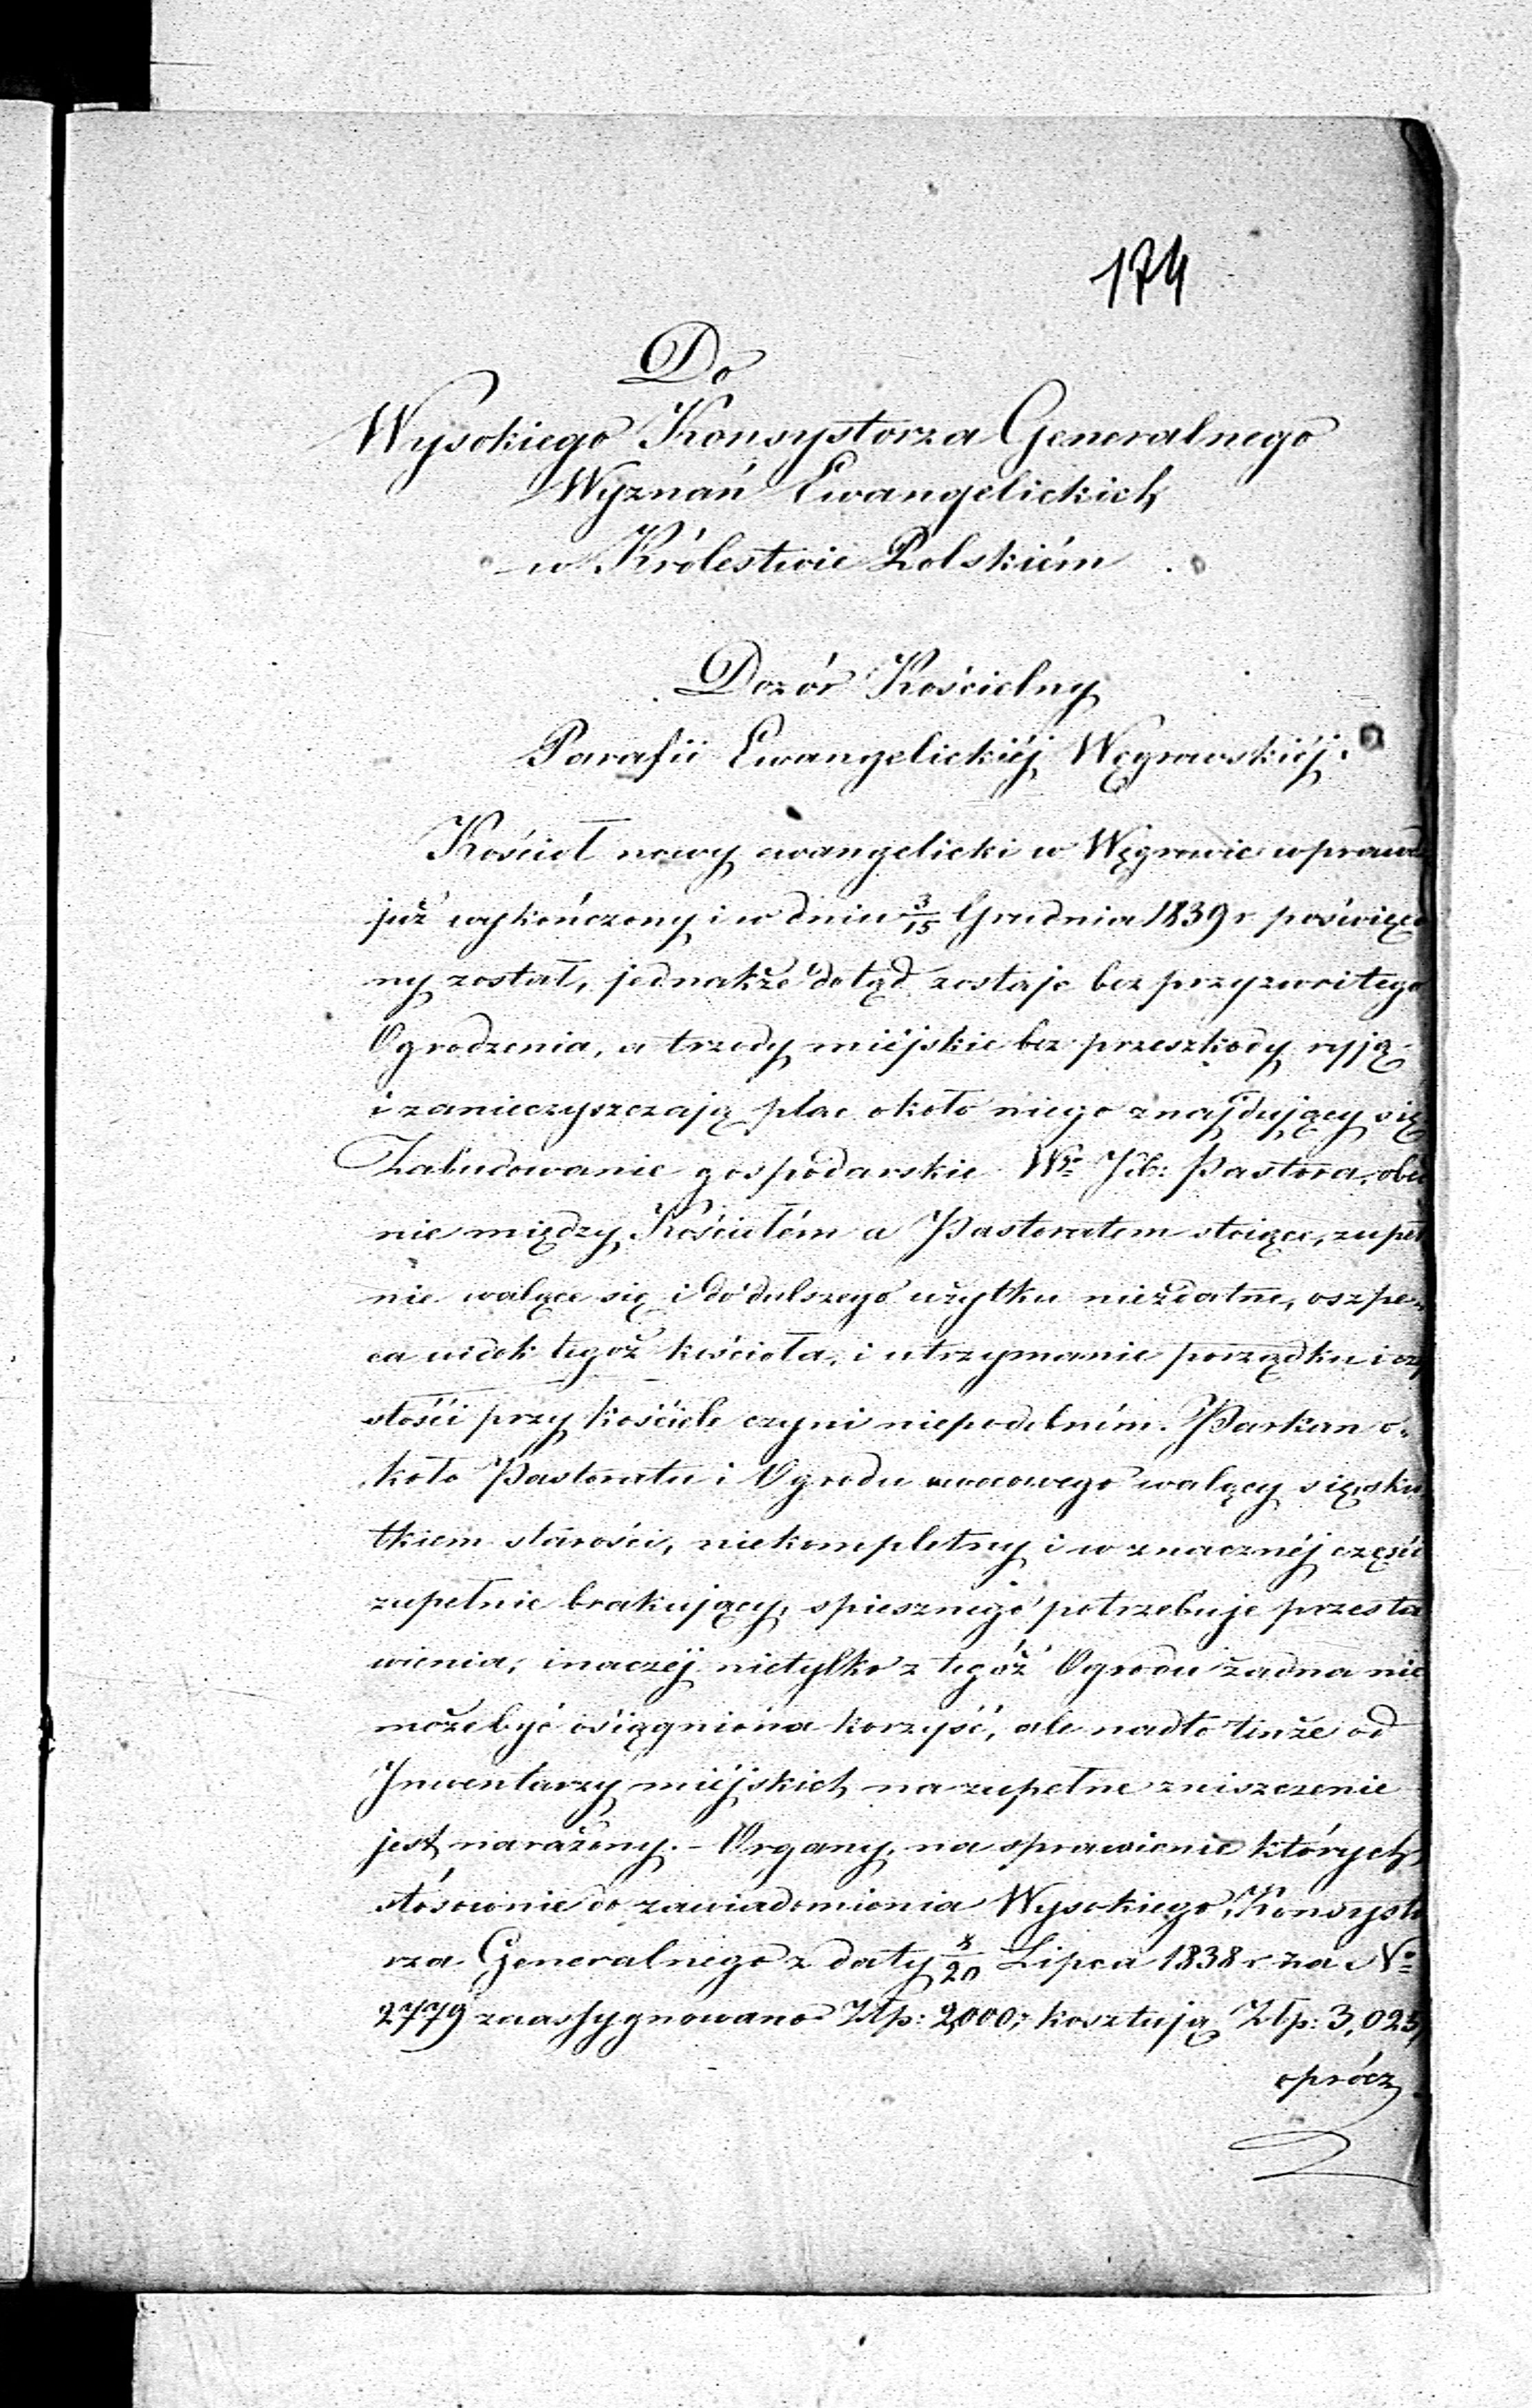 174
Do
Wysokiego Konsystorza Generalnego
Wyznań Ewangelickich
w Królestwie Polskiém
Dozór Kościelny
Parafii Ewangelickiéj Węgrowskiéj.
Kościoł nowy ewangelicki w Węgrowie wprawd
już wykończony i w dniu 3/15 Grudnia 1839 r poświęco
ny został, jednakże dotąd zostaje bez przyzwoitego
Ogrodzenia, a trzody miéjskie bez przeszkody ryją
i zanieczyszczają plac około niego znajdujący się
Zabudowanie gospodarskie Wgo JX: Pastora, obec
nie między Kościołém a Pastoratem stojące, zupeł
nie walące się i do dalszego użytku niezdatne, oszpe-
ca widok tegoż kościoła, i utrzymanie porządku i czy
stości przy kościele czyni niepodobném. Parkan o-
koło Pastoratu i Ogrodu owocowego walący się sku
tkiem starości, niekompletny i w znacznéj części
zupełnie brakujący, spiesznego potrzebuje przesta
wienia, inaczéj nietylko z tegóż Ogrodu żadna nie
może być osiągniona korzyść, ale nadto tenże od
Jnwentarzy miéjskich na zupełne zniszczenie
jest narażony. - Organy, na sprawienie których
stósownie do zawiadomienia Wysokiego Konsysto
rza Generalnego z daty 8/20 Lipca 1838 r za No
2779 zaassygnowano Złp: 2,000; kosztują Złp: 3,025,
oprócz